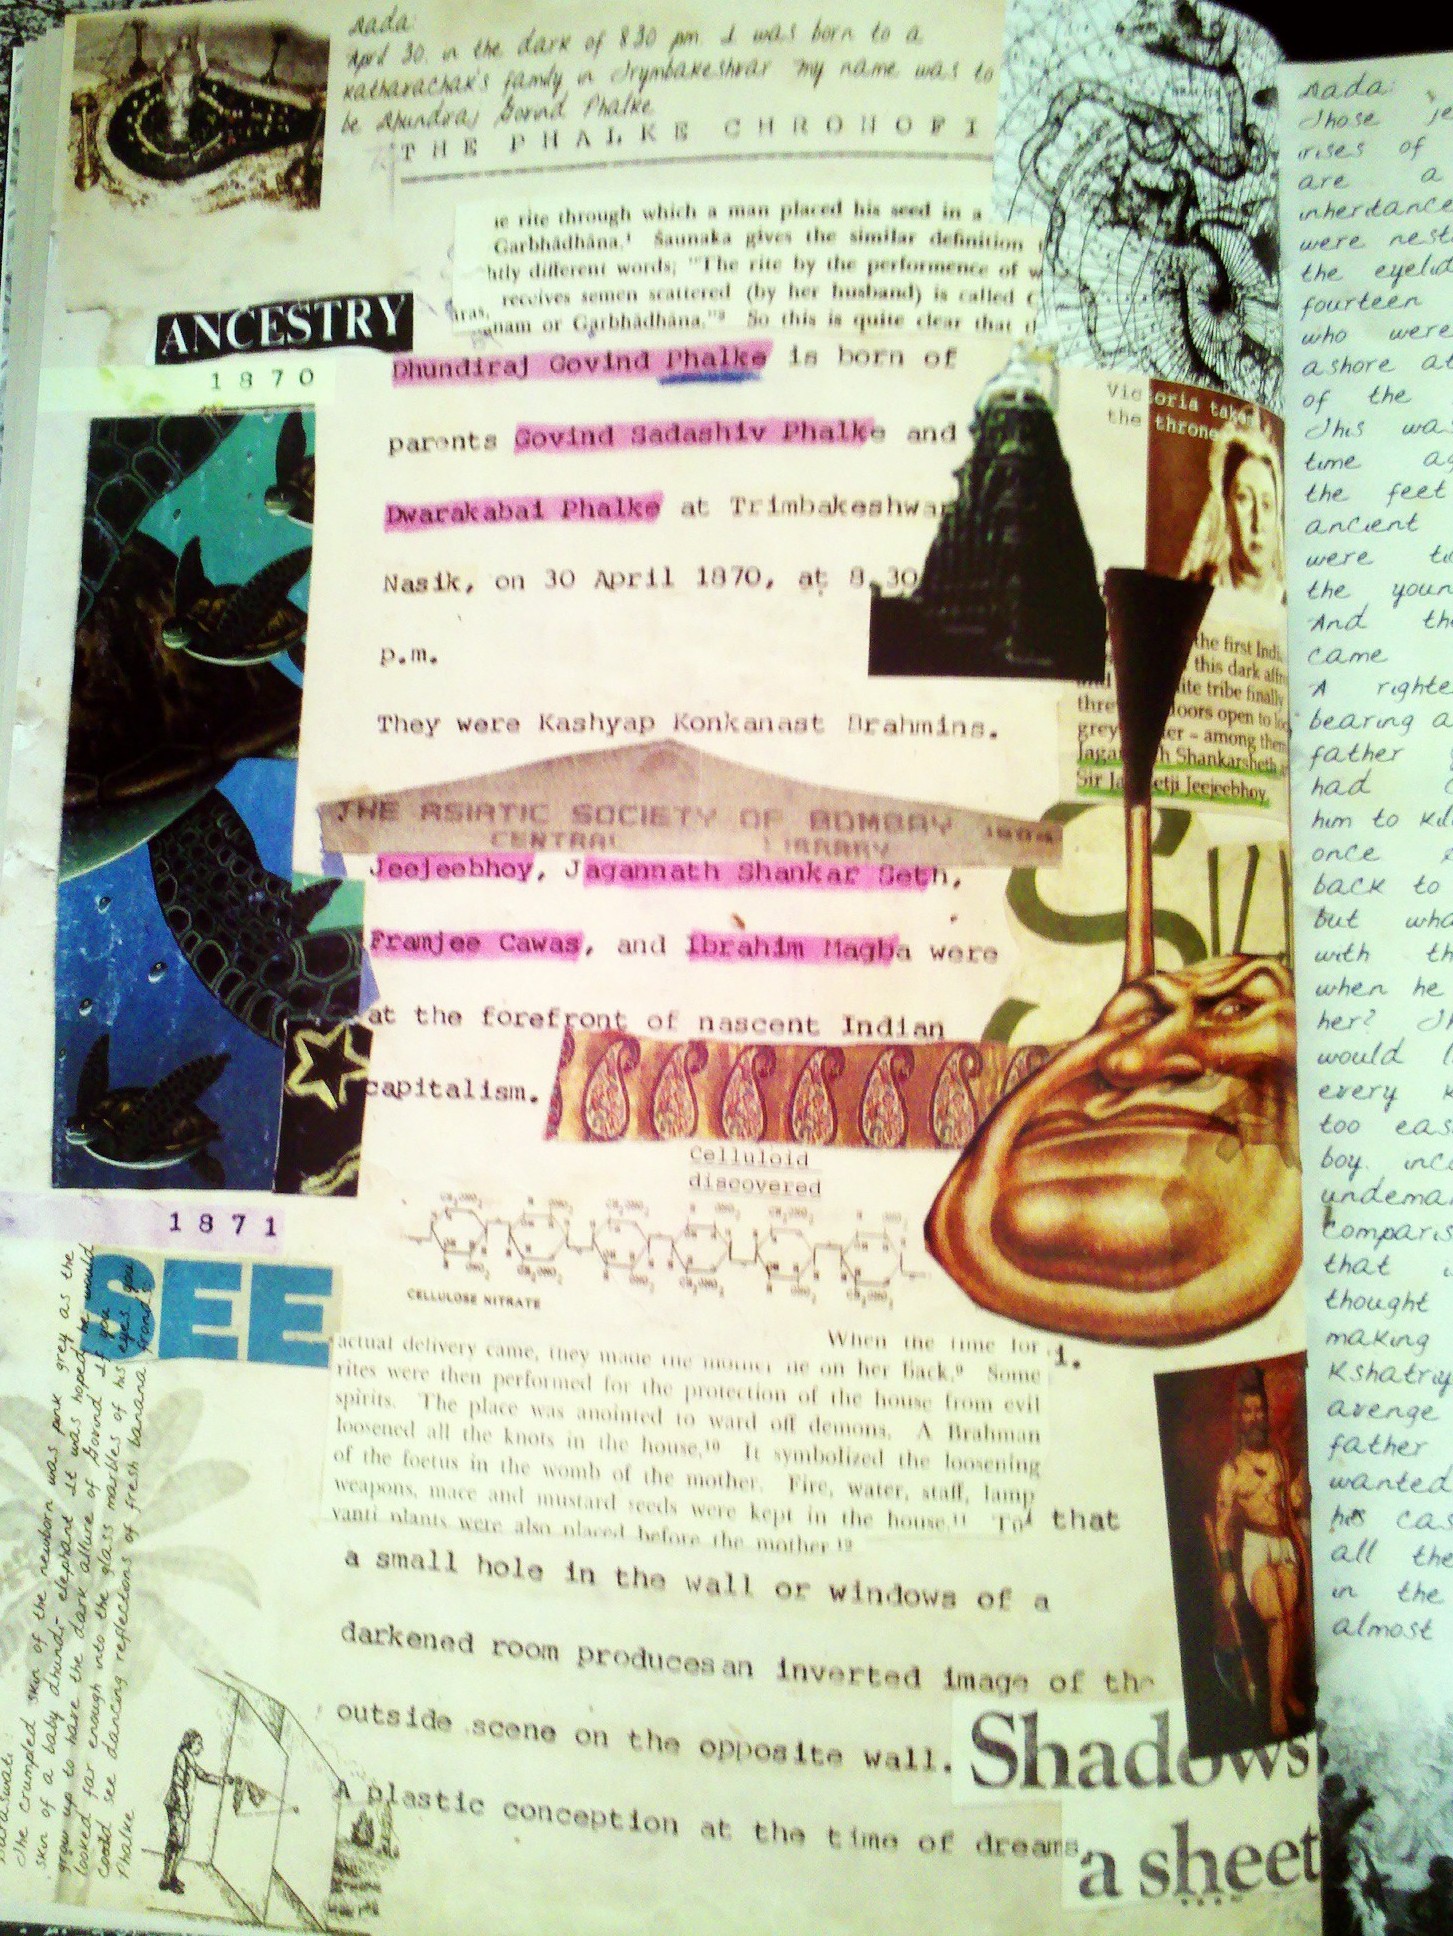 Dada:
April 30. in the dark of 8.30 pm. I was born to a
Katharachak's family in Trymbakeshvar my name was to
be Dhundiraj Govind Phalke
THE PHALKE CHRONOFI
ie rite through which a man placed his seed in a
Garbhādhāna.¹ Śaunaka gives the similar definition
htly different words; "The rite by the performence of w
receives semen scattered (by her husband) is called G
nam or Garbhādhāna."² So this is quite clear that th
ANCESTRY
1870
Dhundiraj Govind Phalke is born of
parents Govind Sadashiv Phalke and
Dwarakabai Phalke at Trimbakeshwar
Nasik, on 30 April 1870, at 8.30
p.m.
They were Kashyap Konkanast Brahmins.
Victoria takes
the throne
the first Indi
this dark
ite tribe finally
threw doors open to
grey – among them
Jagan h Shankarsheth
Sir Ja etji Jeejeebhoy.
THE ASIATIC SOCIETY OF BOMBAY 1804
CENTRAL LIBRARY
Jeejeebhoy, Jagannath Shankar Seth,
Framjee Cawas, and Ibrahim Magba were
at the forefront of nascent Indian
capitalism.
Celluloid
discovered
CELLULOSE NITRATE
1871
BEE
When the time for
actual delivery came, they made the mother lie on her back.⁹ Some
rites were then performed for the protection of the house from evil
spirits. The place was anointed to ward off demons. A Brahman
loosened all the knots in the house.¹⁰ It symbolized the loosening
of the foetus in the womb of the mother. Fire, water, staff, lamp
weapons, mace and mustard seeds were kept in the house.¹¹ Tu
yanti plants were also placed before the mother.¹²
1.
that
a small hole in the wall or windows of a
darkened room produces an inverted image of the
outside scene on the opposite wall.
A plastic conception at the time of dreams.
Shadows
a sheet
Saraswati:
The crumpled skin of the newborn was pink grey as the
skin of a baby dhundi- elephant. It was hoped he would
grow up to have the dark allure of Govind. If you
looked far enough into the glass marbles of his eyes you
could see dancing reflections of fresh banana fronds.
Phalke
Dada:
Those je
rises of
are a
inheritance
were nest
the eyelid
fourteen
who were
ashore at
of the
This was
time ag
the feet
ancient
were to
the youn
And the
came
A righte
bearing a
father
had
him to kill
once
back to
but wha
with th
when he
her? Th
would l
every k
too eas
boy. inc
undema
comparis
that
thought
making
Kshatriy
avenge
father
wanted
his cas
all the
in the
almost